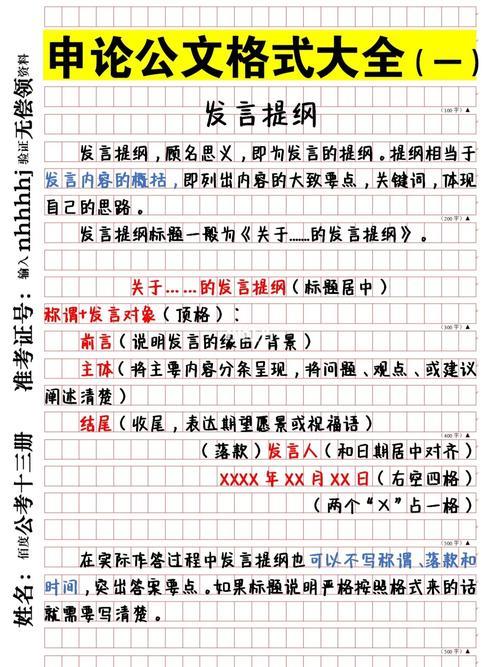 申论公文格式大全(一)
（100字）▲
发言提纲
发言提纲，顾名思义，即为发言的提纲。提纲相当于
发言内容的概括，即列出内容的大致要点，关键词，体现
自己的思路。
（200字）▲
发言提纲标题一般为《关于......的发言提纲》。
关于... ...的发言提纲（标题居中）
（300字）▲
称谓+发言对象（顶格）：
前言（说明发言的缘由/背景）
主体（将主要内容分条呈现，将问题、观点、或建议
阐述清楚）
结尾（收尾，表达期望愿景或祝福语）
（400字）▲
（落款）发言人（和日期居中对齐）
XXXX年XX月XX日（右空四格）
（两个“X”占一格）
（500字）▲
在实际作答过程中发言提纲也可以不写称谓、落款和
时间，突出答案要点。如果标题说明严格按照格式来的话
就需要写清楚。
（500字）▲
姓名：佰度公考十三册 准考证号：输入nhhhhj验证无偿领资料